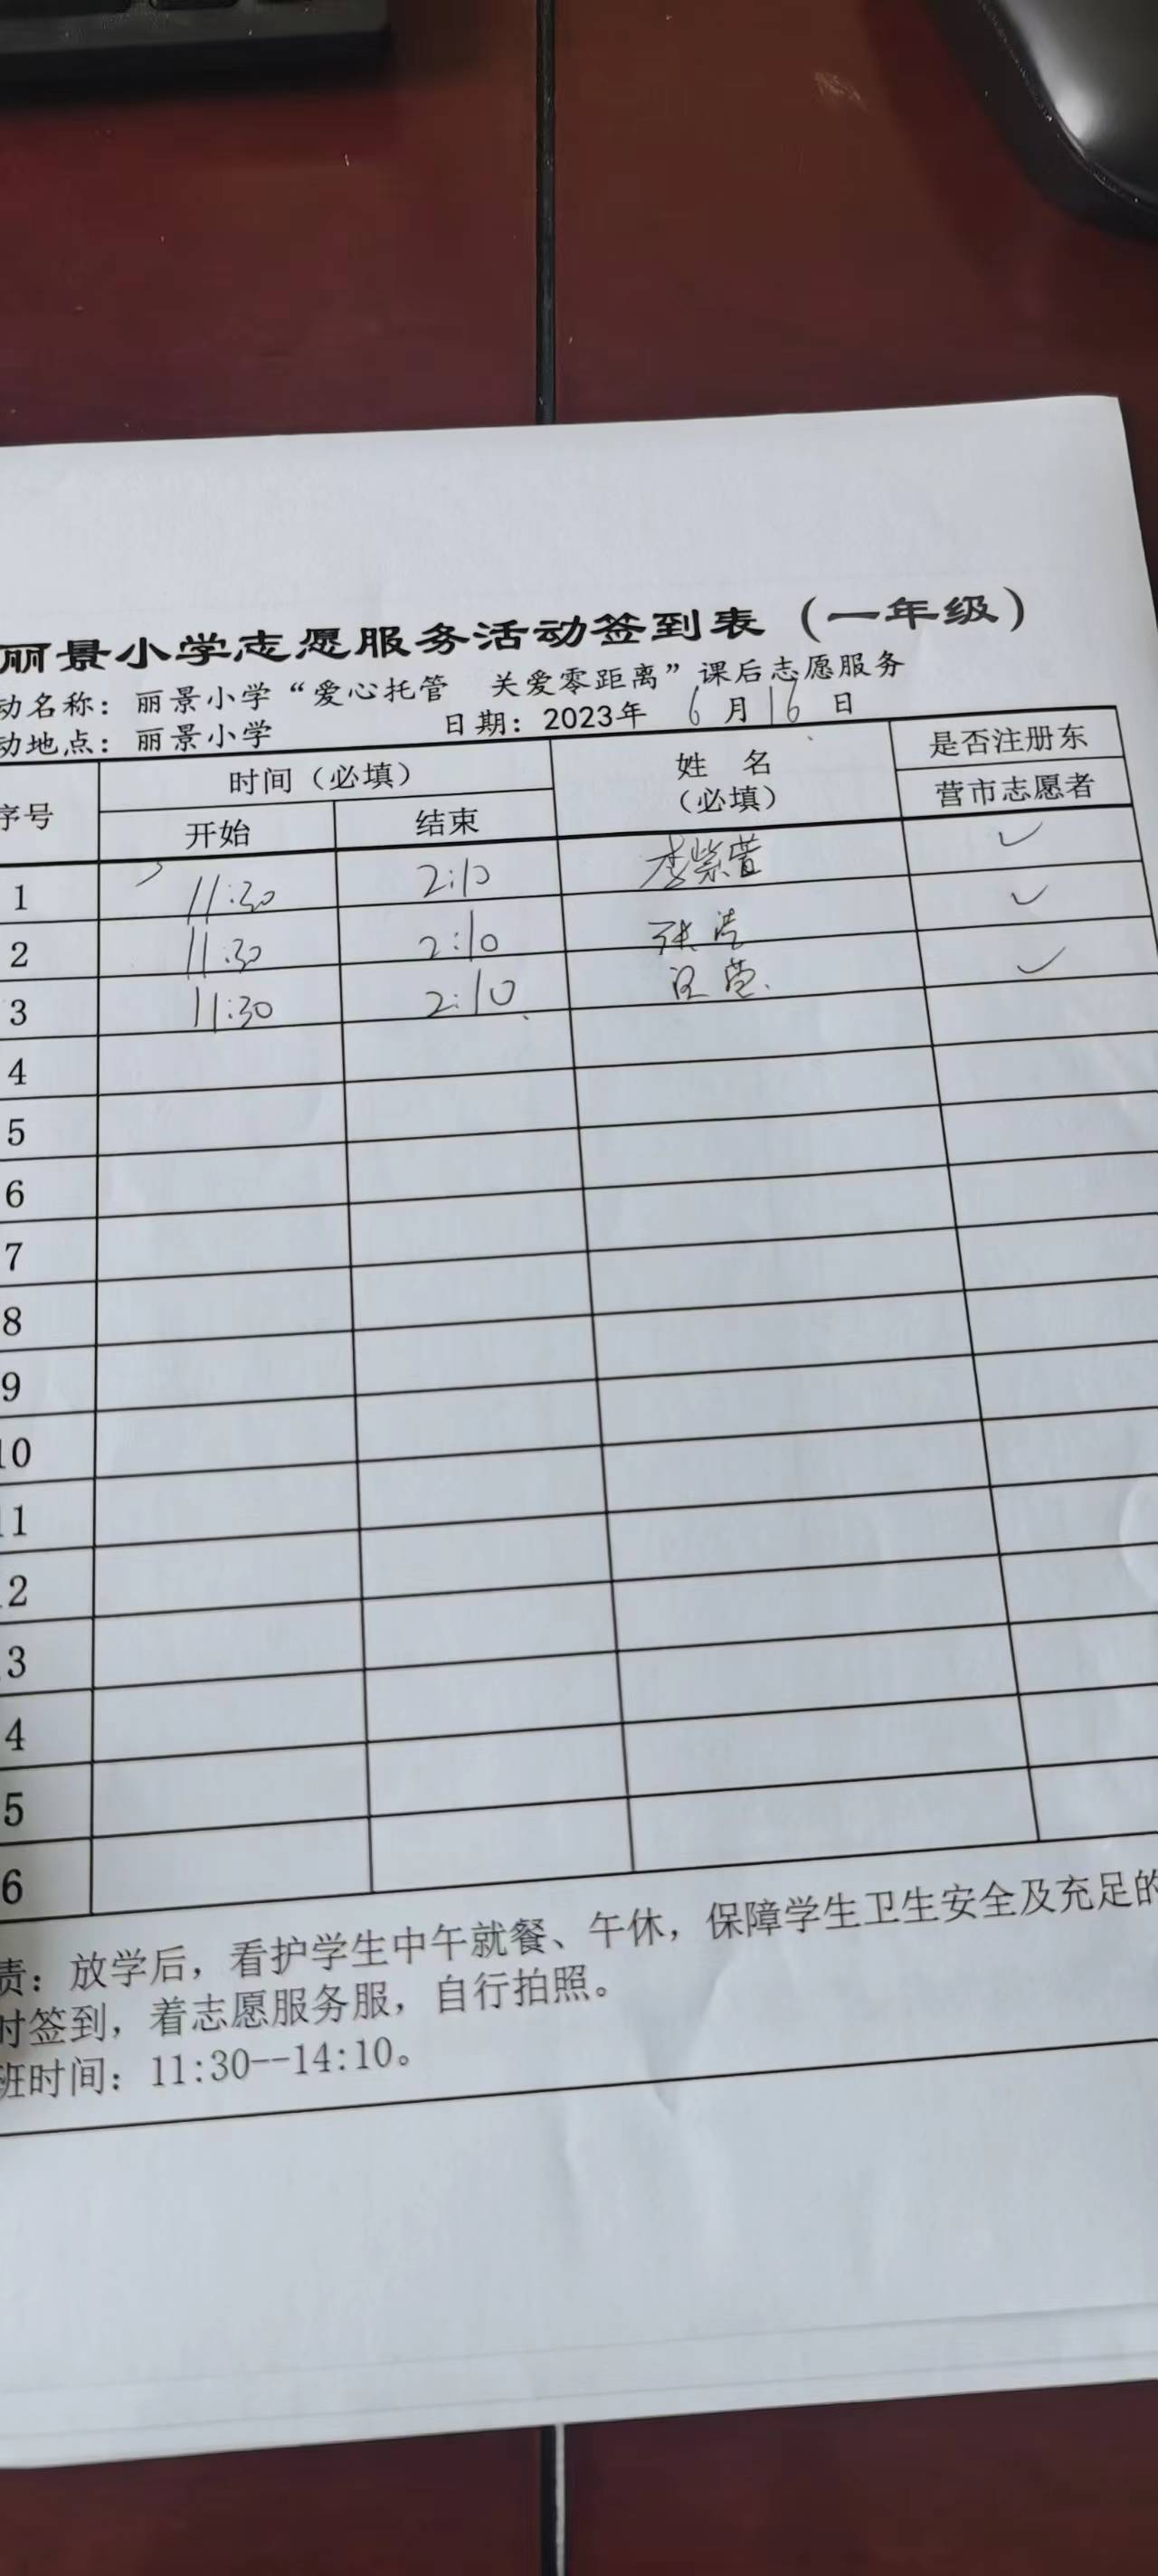 丽景小学志愿服务活动签到表（一年级）
动名称：丽景小学“爱心托管 关爱零距离”课后志愿服务
动地点：丽景小学 日期：2023年 6 月 16 日
序号 时间（必填） 姓 名 是否注册东
开始 结束 （必填） 营市志愿者
1 11:30 2:10 李紫萱 ✓
2 11:30 2:10 张 ✓
3 11:30 2:10 ✓
4
5
6
7
8
9
10
11
12
3
4
5
6
责：放学后，看护学生中午就餐、午休，保障学生卫生安全及充足的
时签到，着志愿服务服，自行拍照。
班时间：11:30--14:10。